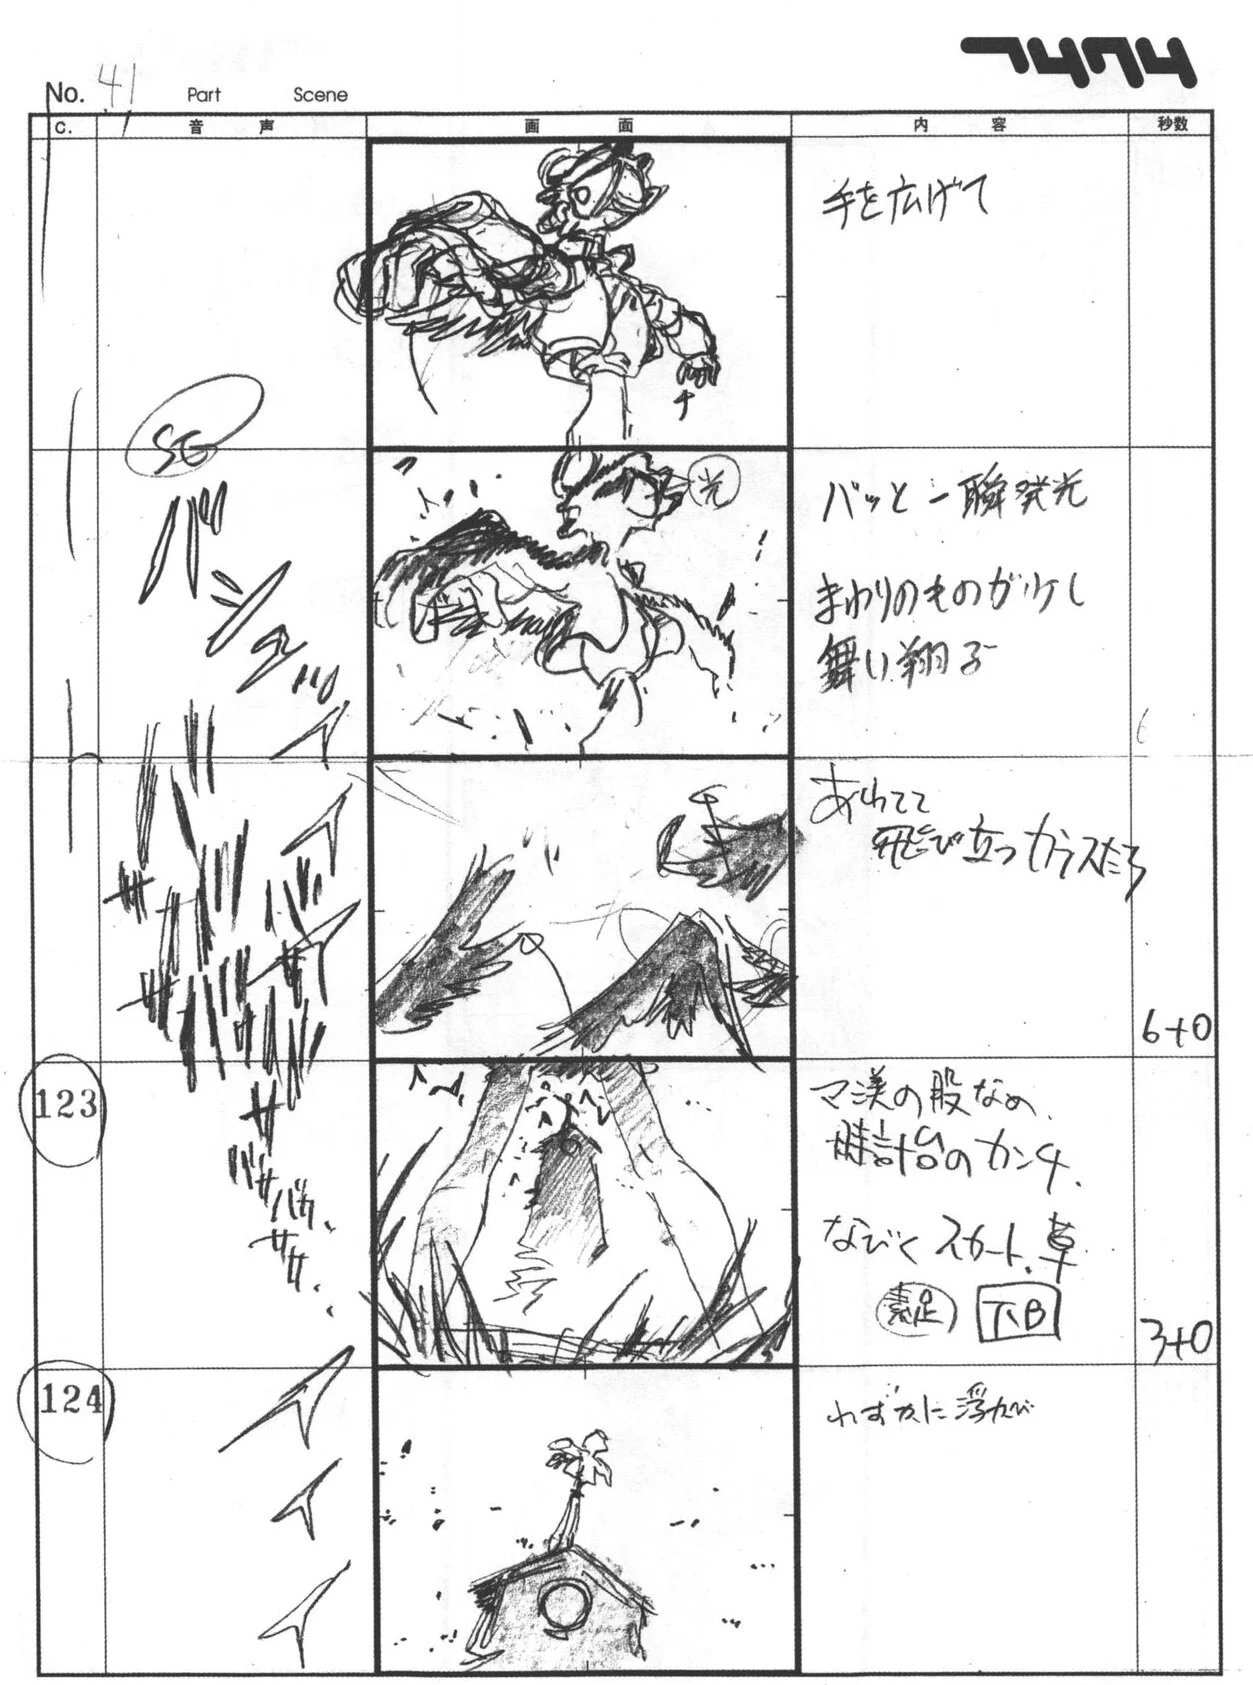 No. 41 Part Scene
C. 音声 画面 内容 秒数
手を広げて
SE
バ
ッ
光
バッと一瞬発光
まわりのものが
舞い翔る
あわてて
飛び立つカラスたち
ザ
ザ
6+0
123
ザ
バサバサ、
ササ、
の股なめ、
時計台のカンナ、
なびくスカート、草
素足
下B
3+0
124
わずかに浮かび